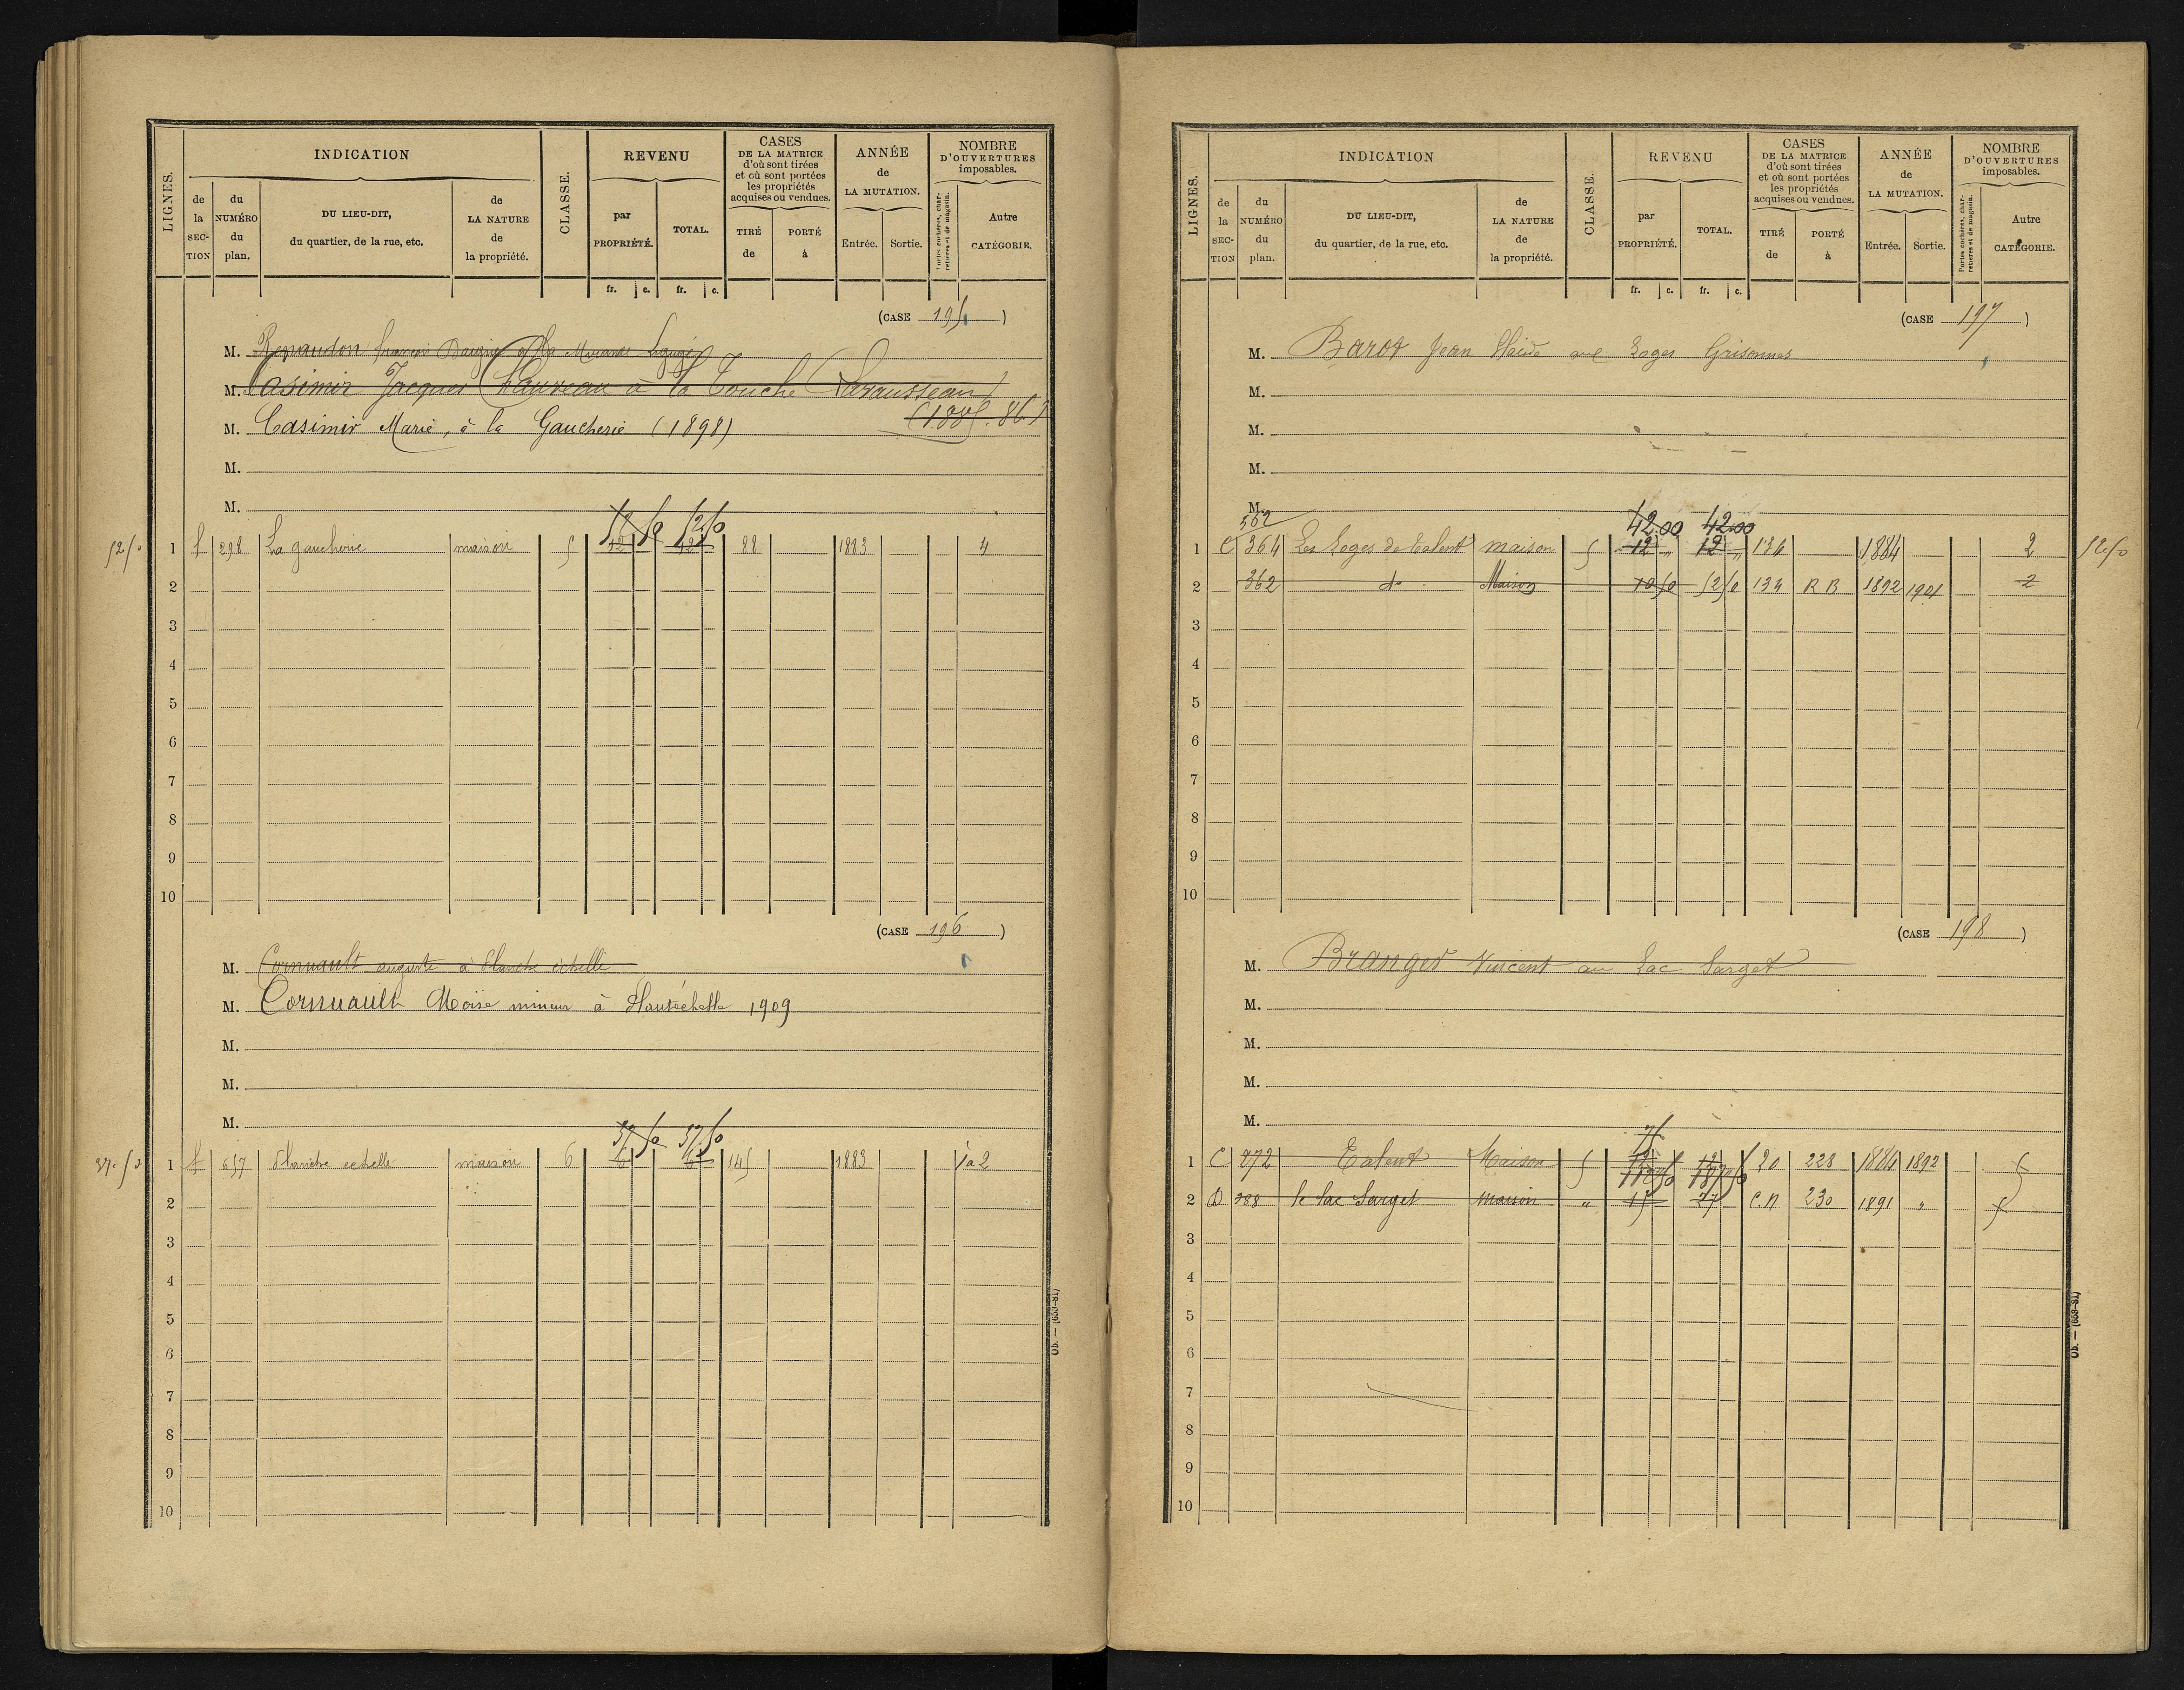 LIGNES.
INDICATION
de la SECTION
du NUMÉRO du plan.
DU LIEU-DIT, du quartier, de la rue, etc.
de LA NATURE de la propriété.
CLASSE.
REVENU
par PROPRIÉTÉ.
TOTAL.
fr. c. fr. c.
CASES
DE LA MATRICE
d'où sont tirées
et où sont portées
les propriétés
acquises ou vendues.
TIRÉ de
PORTÉ à
ANNÉE
de
LA MUTATION.
Entrée. Sortie.
NOMBRE
D'OUVERTURES
imposables.
Portes cochères, charretières et de magasin.
Autre CATÉGORIE.
(CASE 195)
M. Renaudon françois
M. Casimir Jacques Chauveau à la Touche Lavausseau
(1885.86)
M. Casimir Marie, à la Gaucherie (1898)
M.
M.
52 50
52 50 52 50
1 f 298 La gaucherie maison 5 42 42 88 1883 4
2
3
4
5
6
7
8
9
10
(CASE 196)
M. Cornuault auguste à
M. Cornuault Moïse mineur à Hautéchelle 1909
M.
M.
M.
37.50
37 50 37 50
1 f 657 echelle maison 6 6 6 145 1883 1 à 2
2
3
4
5
6
7
8
9
10
Ob. — (653-81)
LIGNES.
INDICATION
de la SECTION
du NUMÉRO du plan.
DU LIEU-DIT, du quartier, de la rue, etc.
de LA NATURE de la propriété.
CLASSE.
REVENU
par PROPRIÉTÉ.
TOTAL.
fr. c. fr. c.
CASES
DE LA MATRICE
d'où sont tirées
et où sont portées
les propriétés
acquises ou vendues.
TIRÉ de
PORTÉ à
ANNÉE
de
LA MUTATION.
Entrée. Sortie.
NOMBRE
D'OUVERTURES
imposables.
Portes cochères, charretières et de magasin.
Autre CATÉGORIE.
(CASE 197)
M. Barot Jean aux Loges Grisonnes
M.
M.
M.
M.
562 42.00 42.00
1 C 364 Les Loges de Talent maison 5 12 " 12 " 134 1884 2 52.50
2 362 do Maison 10 50 52 50 134 R B 1892 1901 2
3
4
5
6
7
8
9
10
(CASE 198)
M. Branger Vincent au Lac Sarget
M.
M.
M.
M.
75
1 C 872 Talent Maison 5 12 12 20 228 1884 1892 5
112 50 187 50
2 D 388 le lac Sarget maison " 15 27 C.N 230 1891 "
3
4
5
6
7
8
9
10
Ob. — (653-81)